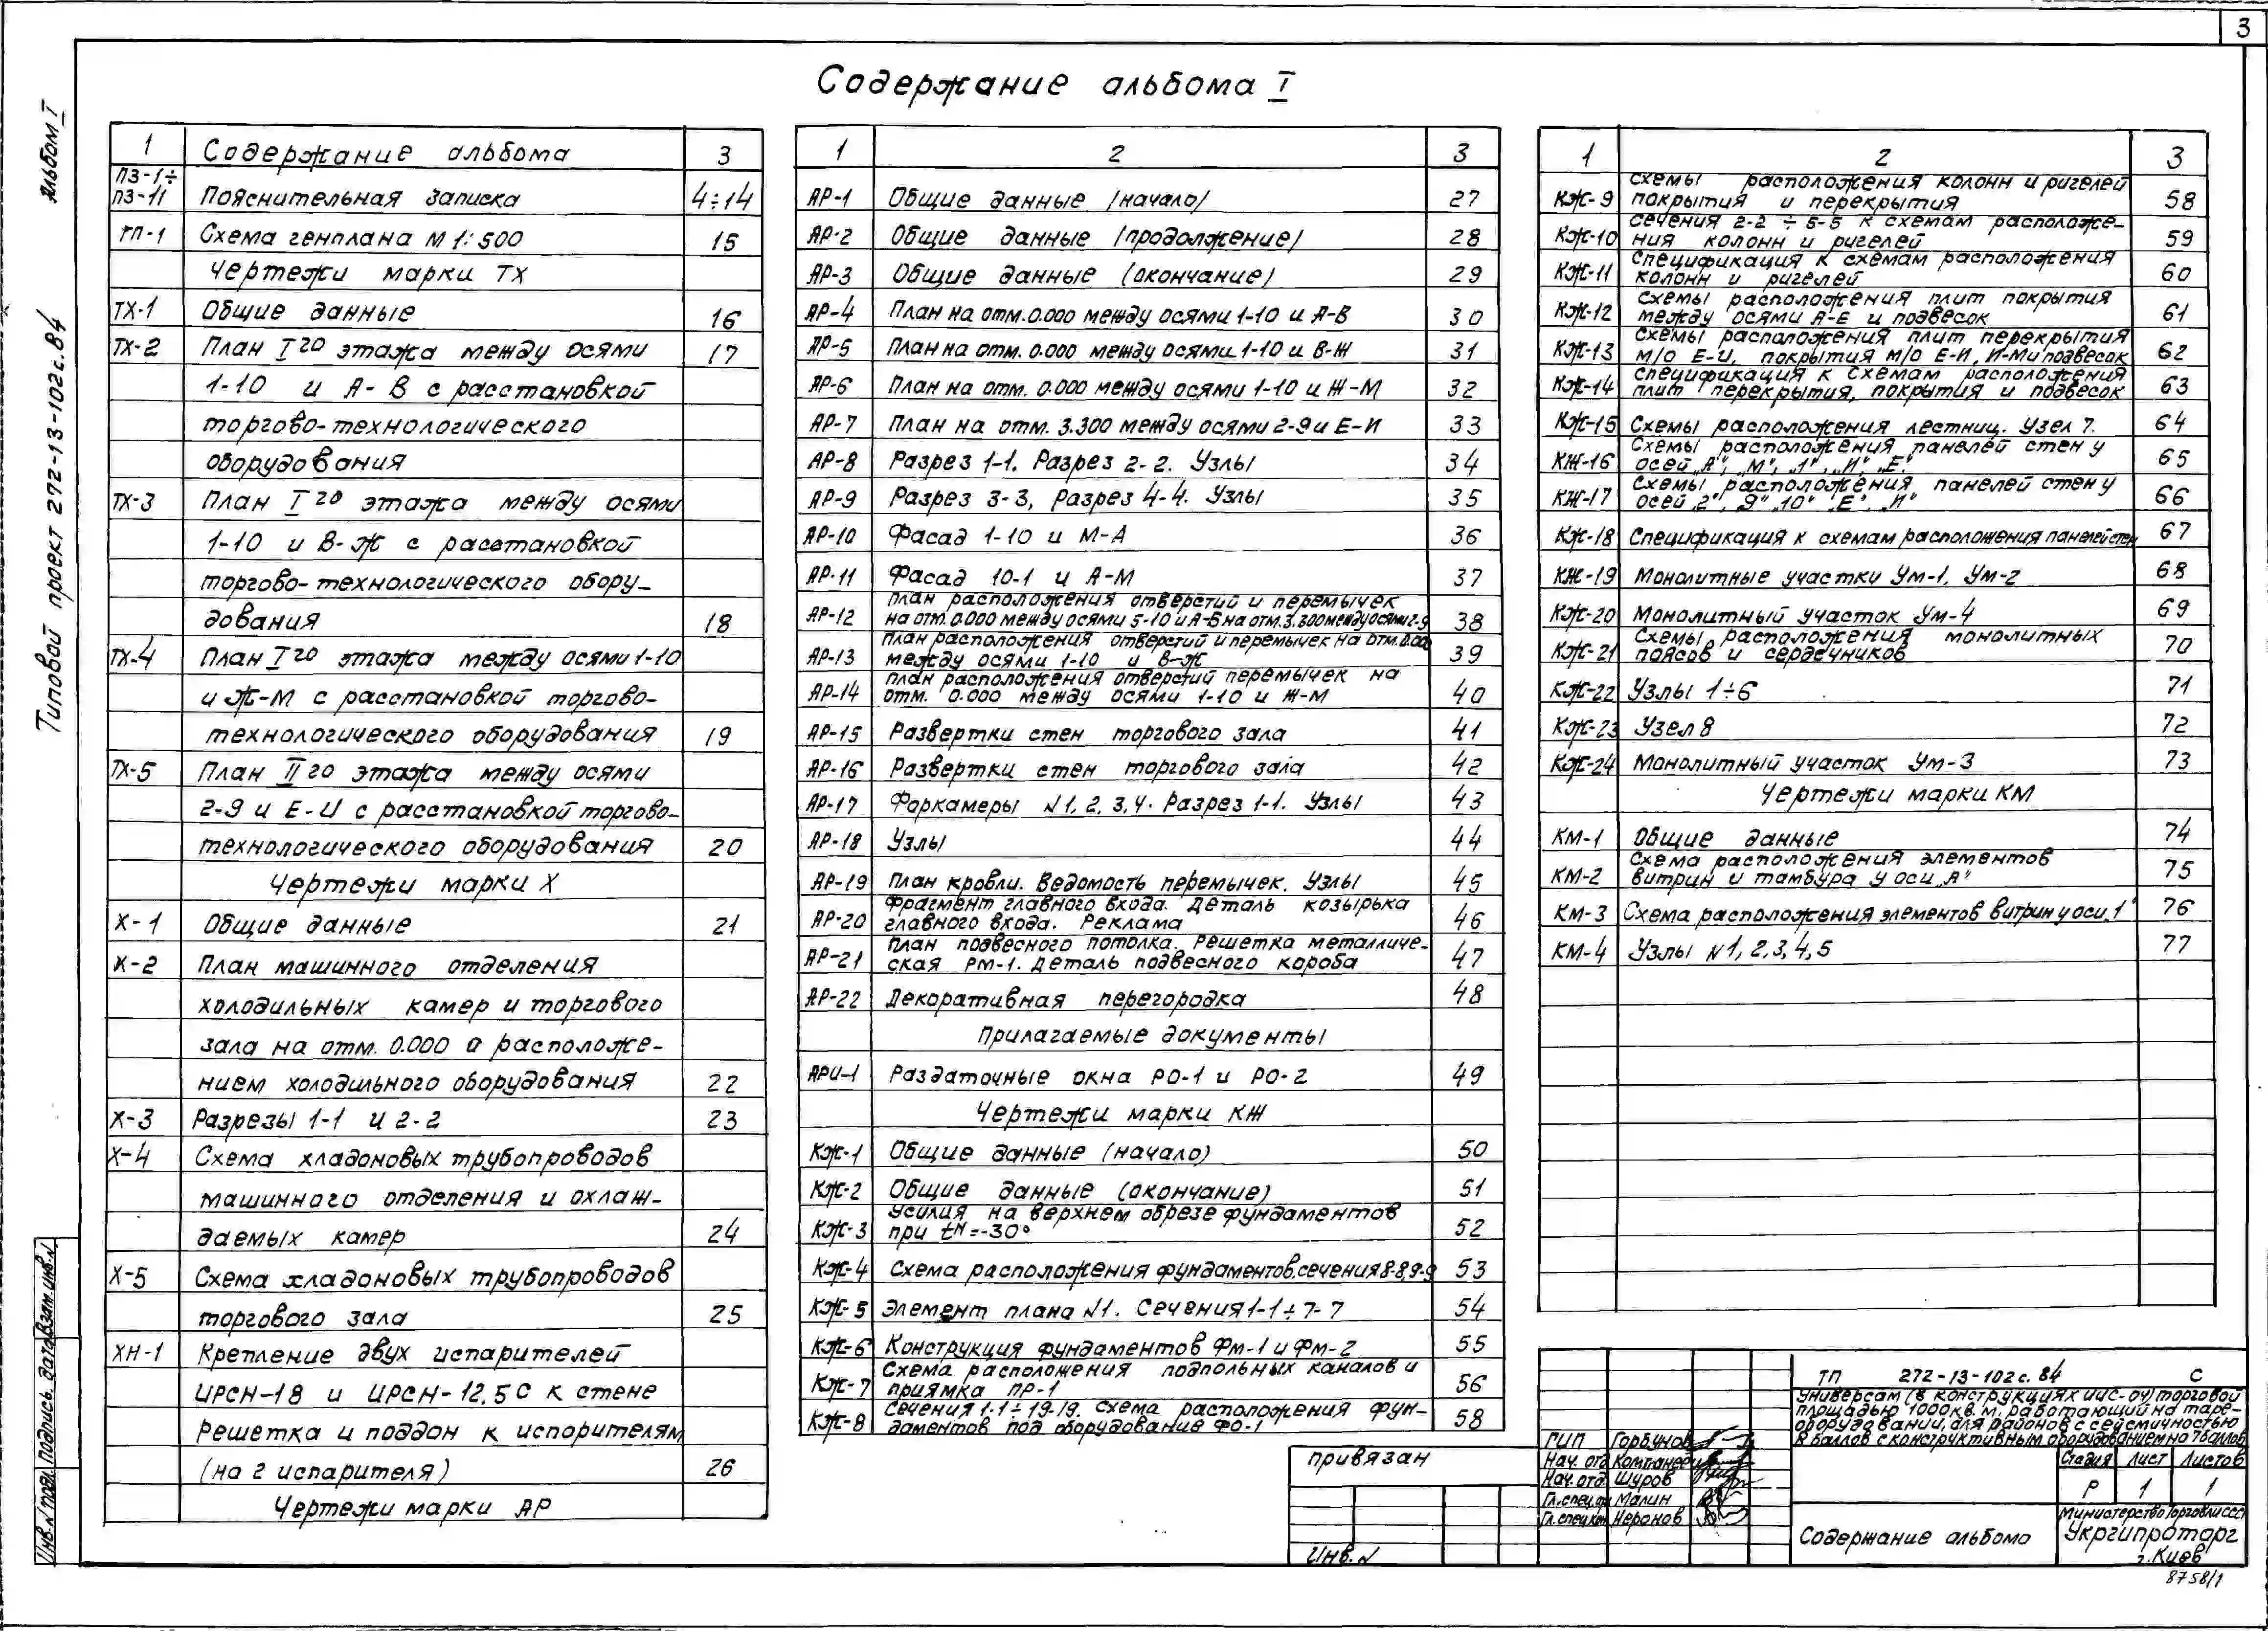 3
Содержание альбома I
Альбом I
Типовой проект 272-13-102с.84
1 Содержание альбома 3
ПЗ-1÷
ПЗ-11 Пояснительная записка 4÷14
ГП-1 Схема генплана М 1:500 15
Чертежи марки ТХ
ТХ-1 Общие данные 16
ТХ-2 План I го этажа между осями 17
1-10 и А-В с расстановкой
торгово-технологического
оборудования
ТХ-3 План I го этажа между осями
1-10 и В-Ж с расстановкой
торгово-технологического обору-
дования 18
ТХ-4 План I го этажа между осями 1-10
и Ж-М с расстановкой торгово-
технологического оборудования 19
ТХ-5 План II го этажа между осями
2-9 и Е-И с расстановкой торгово-
технологического оборудования 20
Чертежи марки Х
Х-1 Общие данные 21
Х-2 План машинного отделения
холодильных камер и торгового
зала на отм. 0.000 с расположе-
нием холодильного оборудования 22
Х-3 Разрезы 1-1 и 2-2 23
Х-4 Схема хладоновых трубопроводов
машинного отделения и охлаж-
даемых камер 24
Х-5 Схема хладоновых трубопроводов
торгового зала 25
ХН-1 Крепление двух испарителей
ИРСН-18 и ИРСН-12,5С к стене
Решетка и поддон к испорителям
(на 2 испарителя) 26
Чертежи марки АР
1 2 3
АР-1 Общие данные /начало/ 27
АР-2 Общие данные /продолжение/ 28
АР-3 Общие данные (окончание) 29
АР-4 План на отм. 0.000 между осями 1-10 и А-В 30
АР-5 План на отм. 0.000 между осями 1-10 и В-Ж 31
АР-6 План на отм. 0.000 между осями 1-10 и Ж-М 32
АР-7 План на отм. 3.300 между осями 2-9 и Е-И 33
АР-8 Разрез 1-1. Разрез 2-2. Узлы 34
АР-9 Разрез 3-3, Разрез 4-4. Узлы 35
АР-10 Фасад 1-10 и М-А 36
АР-11 Фасад 10-1 и А-М 37
План расположения отверстий и перемычек
АР-12 на отм. 0.000 между осями 5-10 и А-Б на отм. 3.300 между осями 2-9 38
План расположения отверстий и перемычек на отм. 0.000
АР-13 между осями 1-10 и В-Ж 39
План расположения отверстий перемычек на
АР-14 отм. 0.000 между осями 1-10 и Ж-М 40
АР-15 Развертки стен торгового зала 41
АР-16 Развертки стен торгового зала 42
АР-17 Форкамеры N1, 2, 3, 4. Разрез 1-1. Узлы 43
АР-18 Узлы 44
АР-19 План кровли. Ведомость перемычек. Узлы 45
Фрагмент главного входа. Деталь козырька
АР-20 главного входа. Реклама 46
План подвесного потолка. Решетка металличе-
АР-21 ская РМ-1. Деталь подвесного короба 47
АР-22 Декоративная перегородка 48
Прилагаемые документы
АРИ-1 Раздаточные окна РО-1 и РО-2 49
Чертежи марки КЖ
КЖ-1 Общие данные (начало) 50
КЖ-2 Общие данные (окончание) 51
Усилия на верхнем обрезе фундаментов
КЖ-3 при tн=-30° 52
КЖ-4 Схема расположения фундаментов, сечения 8-8, 9-9 53
КЖ-5 Элемент плана N1. Сечения 1-1÷7-7 54
КЖ-6 Конструкция фундаментов Фм-1 и Фм-2 55
Схема расположения подпольных каналов и
КЖ-7 приямка ПР-1 56
Сечения 1-1÷19-19. Схема расположения фун-
КЖ-8 даментов под оборудование ФО-1 58
1 2 3
Схемы расположения колонн и ригелей
КЖ-9 покрытия и перекрытия 58
Сечения 2-2÷5-5 к схемам расположе-
КЖ-10 ния колонн и ригелей 59
Спецификация к схемам расположения
КЖ-11 колонн и ригелей 60
Схемы расположения плит покрытия
КЖ-12 между осями А-Е и подвесок 61
Схемы расположения плит перекрытия
КЖ-13 м/о Е-И, покрытия м/о Е-И, И-М и подвесок 62
Спецификация к схемам расположения
КЖ-14 плит перекрытия, покрытия и подвесок 63
КЖ-15 Схемы расположения лестниц. Узел 7. 64
Схемы расположения панелей стен у
КЖ-16 осей „А", „М", „1", „И", „Е" 65
Схемы расположения панелей стен у
КЖ-17 осей „2", „9" „10" „Е", „И" 66
КЖ-18 Спецификация к схемам расположения панелей стен 67
КЖ-19 Монолитные участки Ум-1, Ум-2 68
КЖ-20 Монолитный участок Ум-4 69
Схемы расположения монолитных
КЖ-21 поясов и сердечников 70
КЖ-22 Узлы 1÷6 71
КЖ-23 Узел 8 72
КЖ-24 Монолитный участок Ум-3 73
Чертежи марки КМ
КМ-1 Общие данные 74
Схема расположения элементов
КМ-2 витрин и тамбура у оси „А" 75
КМ-3 Схема расположения элементов витрин у оси „1" 76
КМ-4 Узлы N1, 2, 3, 4, 5 77
Привязан
Инв. N
ТП 272-13-102с.84 С
Универсам (в конструкциях ИИС-04) торговой
площадью 1000 кв.м, работающий на таре-
оборудовании, для районов с сейсмичностью
8 баллов с конструктивным оборудованием на 7 баллов
ГИП Горбунов
Нач. отд Компанеец
Нач. отд Шуров
Гл. спец. Малин
Гл. спец. кон Неронов
Стадия Лист Листов
Р 1 1
Содержание альбома
Министерство Торговли СССР
Укргипроторг
г. Киев
8758/1
Инв. N подл. Подпись, дата Взам. инв. N